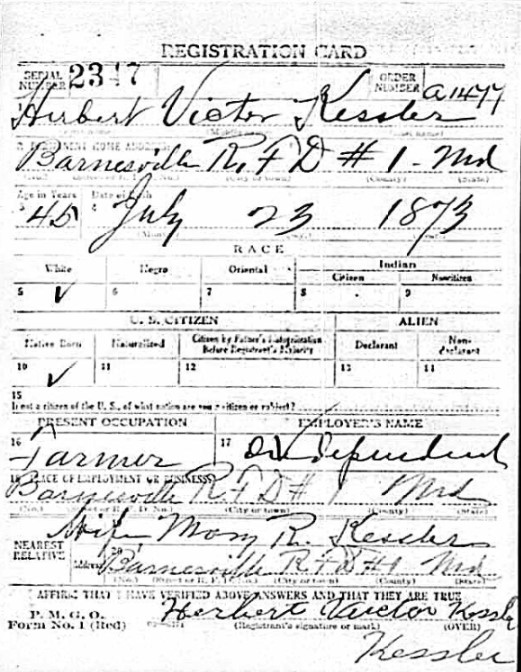 REGISTRATION CARD
SERIAL NUMBER 2347 ORDER NUMBER A1477
1 Herbert Victor Kessler
(Middle name) (Last name)
2 PERMANENT HOME ADDRESS
Barnesville R, F D # 1 - Md
(County) (State)
Age in Years Date of Birth
3 45 4 July 23 1873
RACE
White Negro Oriental Indian
Citizen Noncitizen
5 ✓ 6 7 8 9
U. S. CITIZEN ALIEN
Native Born Naturalized Citizen by Father's Naturalization Before Registrant's Majority Declarant Non-declarant
10 ✓ 11 12 13 14
15
If not a citizen of the U. S., of what nation are you a citizen or subject?
PRESENT OCCUPATION EMPLOYER'S NAME
16 Farmer 17 Independent
18 PLACE OF EMPLOYMENT OR BUSINESS
Barnesville R F D # 1 Md
(No.) (Street or R. F. D. No.) (City or town) (County) (State)
NEAREST RELATIVE Wife Mary R. Kessler
20 Address Barnesville R F D #1 Md
(No.) (Street or R. F. D. No.) (City or town) (County) (State)
I AFFIRM THAT I HAVE VERIFIED ABOVE ANSWERS AND THAT THEY ARE TRUE
P. M. G. O.
Form No. 1 (Red) Herbert Victor Kessler
(Registrant's signature or mark) (OVER)
Kessler